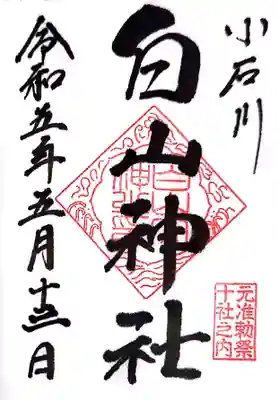 小石川
元准勅祭
十社之内
白山神社
令和五年五月十三日